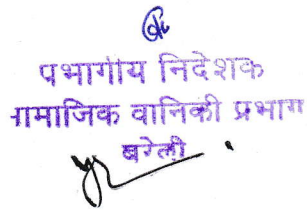 प्रभागीय निदेशक
सामाजिक वानिकी प्रभाग
बरेली